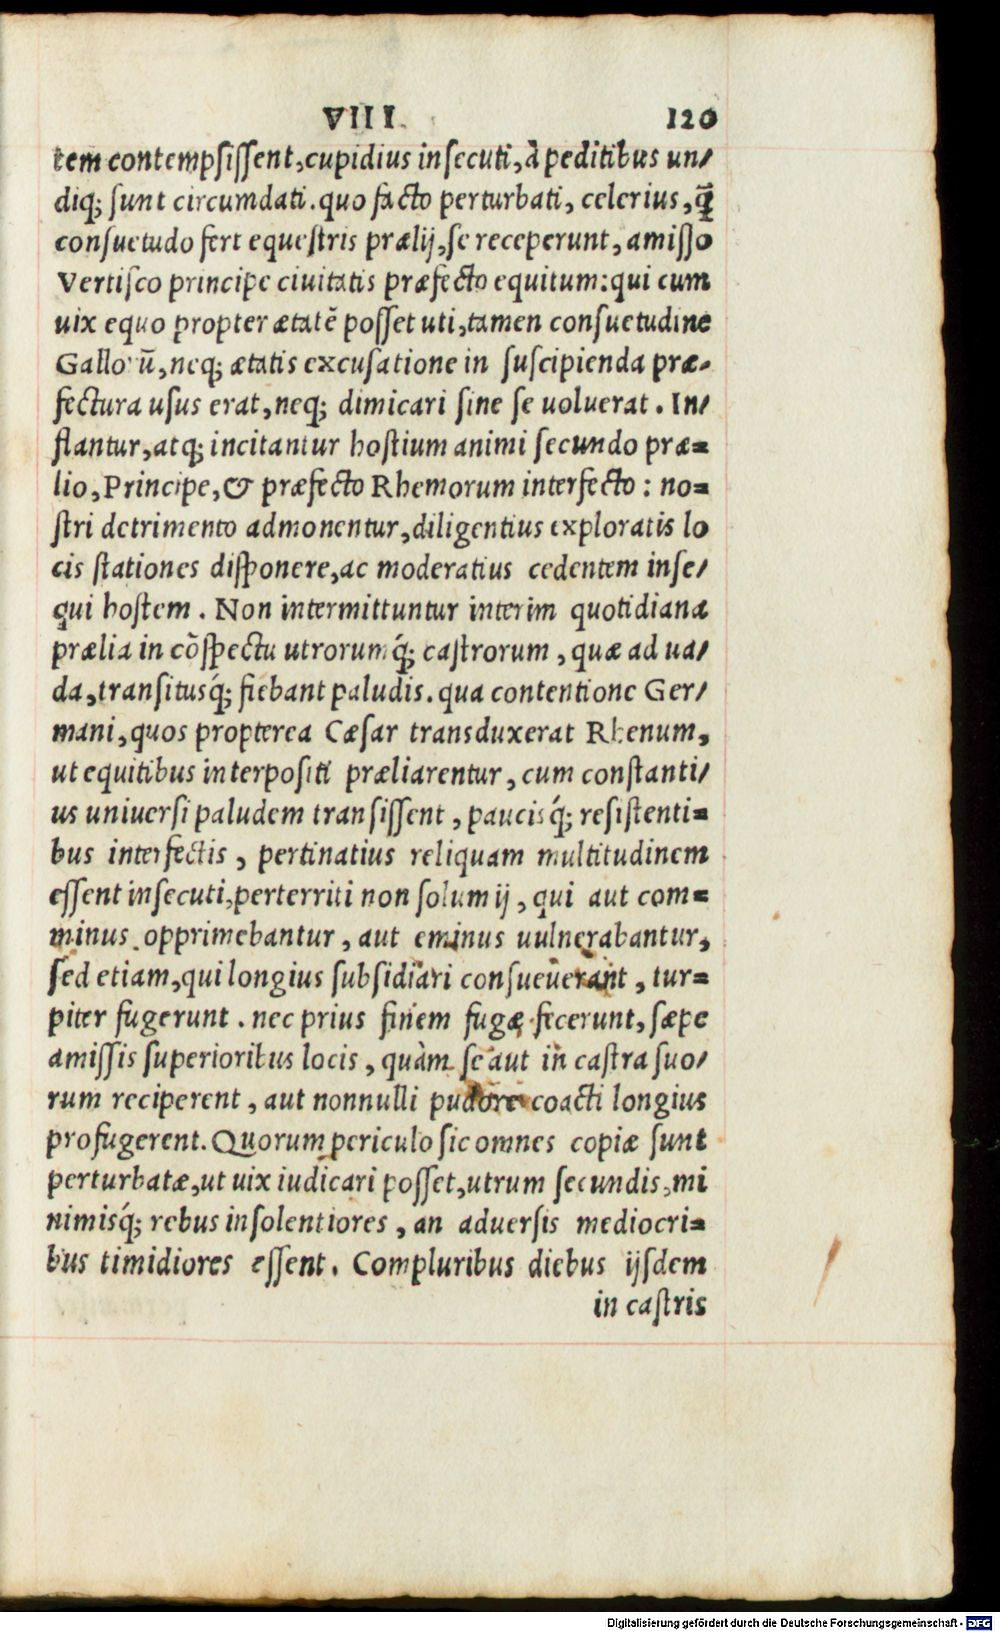 VIII. 120
tem contempsiſſent, cupidius inſecuti, à peditibus un/
diq; ſunt circumdati. quo facto perturbati, celerius, q̃
conſuetudo fert equeſtris prælij, ſe receperunt, amiſſo
Vertiſco principe ciuitatis præfecto equitum: qui cum
uix equo propter ætatē poſſet uti, tamen conſuetudine
Gallorū, neq; ætatis excuſatione in ſuſcipienda præ-
fectura uſus erat, neq; dimicari ſine ſe uoluerat. In/
flantur, atq; incitantur hoſtium animi ſecundo præ=
lio, Principe, & præfecto Rhemorum interfecto: no=
ſtri detrimento admonentur, diligentius exploratis lo
cis ſtationes diſponere, ac moderatius cedentem inſe/
qui hoſtem. Non intermittuntur interim quotidiana
prælia in cōſpectu utrorumq́; caſtrorum, quæ ad ua/
da, tranſitusq́; fiebant paludis. qua contentione Ger/
mani, quos propterea Cæſar transduxerat Rhenum,
ut equitibus interpoſiti præliarentur, cum conſtanti/
us uniuerſi paludem tranſiſſent, paucisq́; reſiſtenti=
bus interfectis, pertinatius reliquam multitudinem
eſſent inſecuti, perterriti non ſolum ij, qui aut com=
minus opprimebantur, aut eminus uulnerabantur,
ſed etiam, qui longius ſubſidiari conſueuerant, tur=
piter fugerunt. nec prius finem fugæ fecerunt, ſæpe
amiſſis ſuperioribus locis, quàm ſe aut in caſtra ſuo/
rum reciperent, aut nonnulli pudore coacti longius
profugerent. Quorum periculo ſic omnes copiæ ſunt
perturbatæ, ut uix iudicari poſſet, utrum ſecundis, mi
nimisq́; rebus inſolentiores, an aduerſis mediocri=
bus timidiores eſſent. Compluribus diebus ijſdem
in caſtris
Digitalisierung gefördert durch die Deutsche Forschungsgemeinschaft - DFG